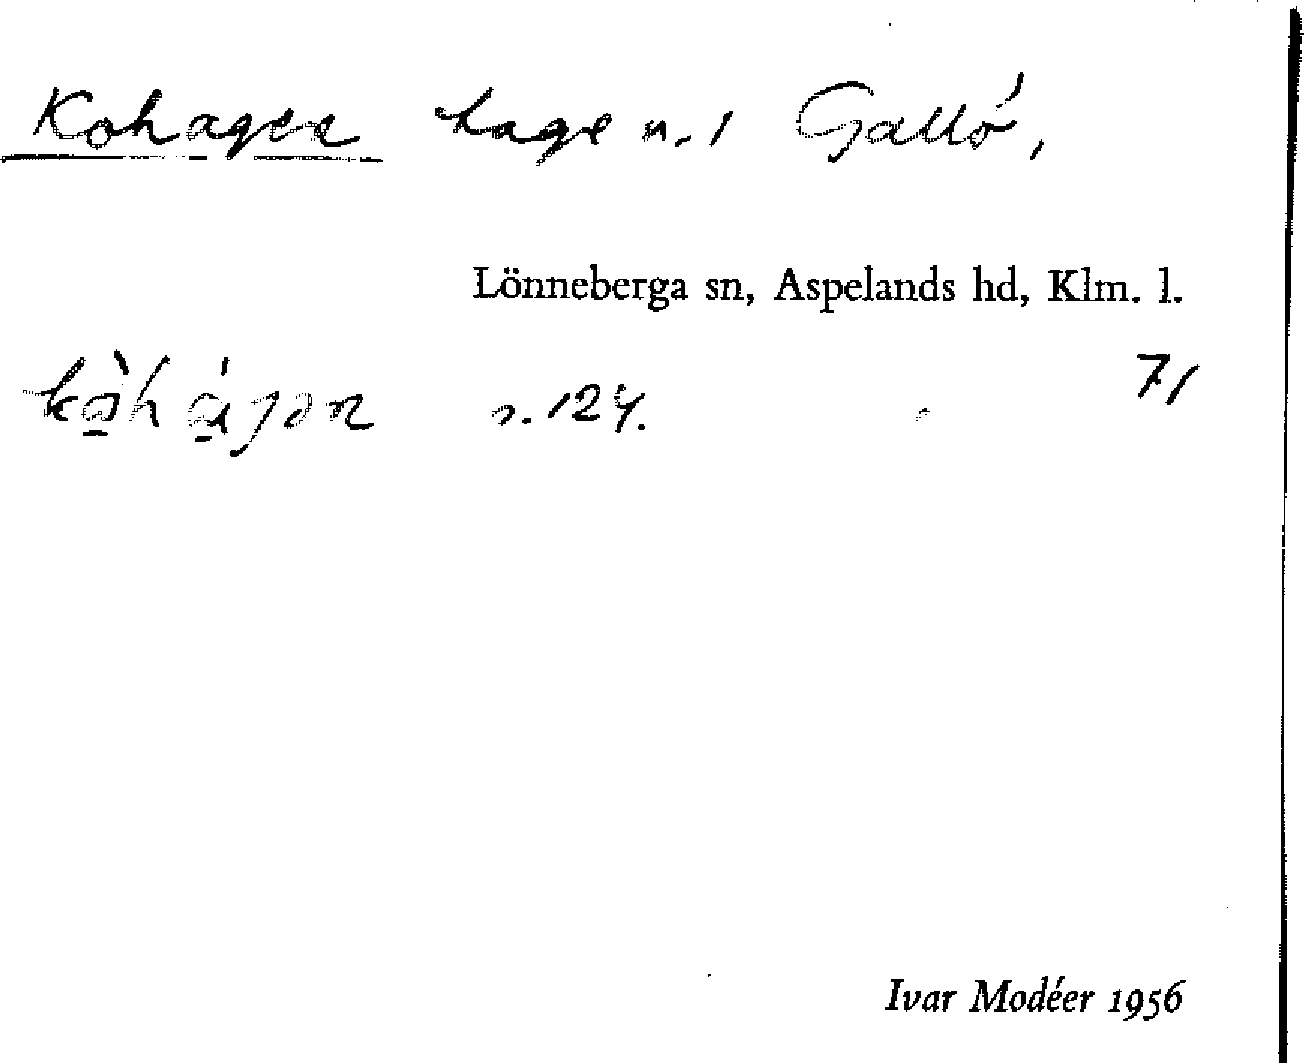 Kohagen hage n. 1 Galtö,
Lönneberga sn, Aspelands hd, Klm. l.
n. 124. 71
Ivar Modéer 1956